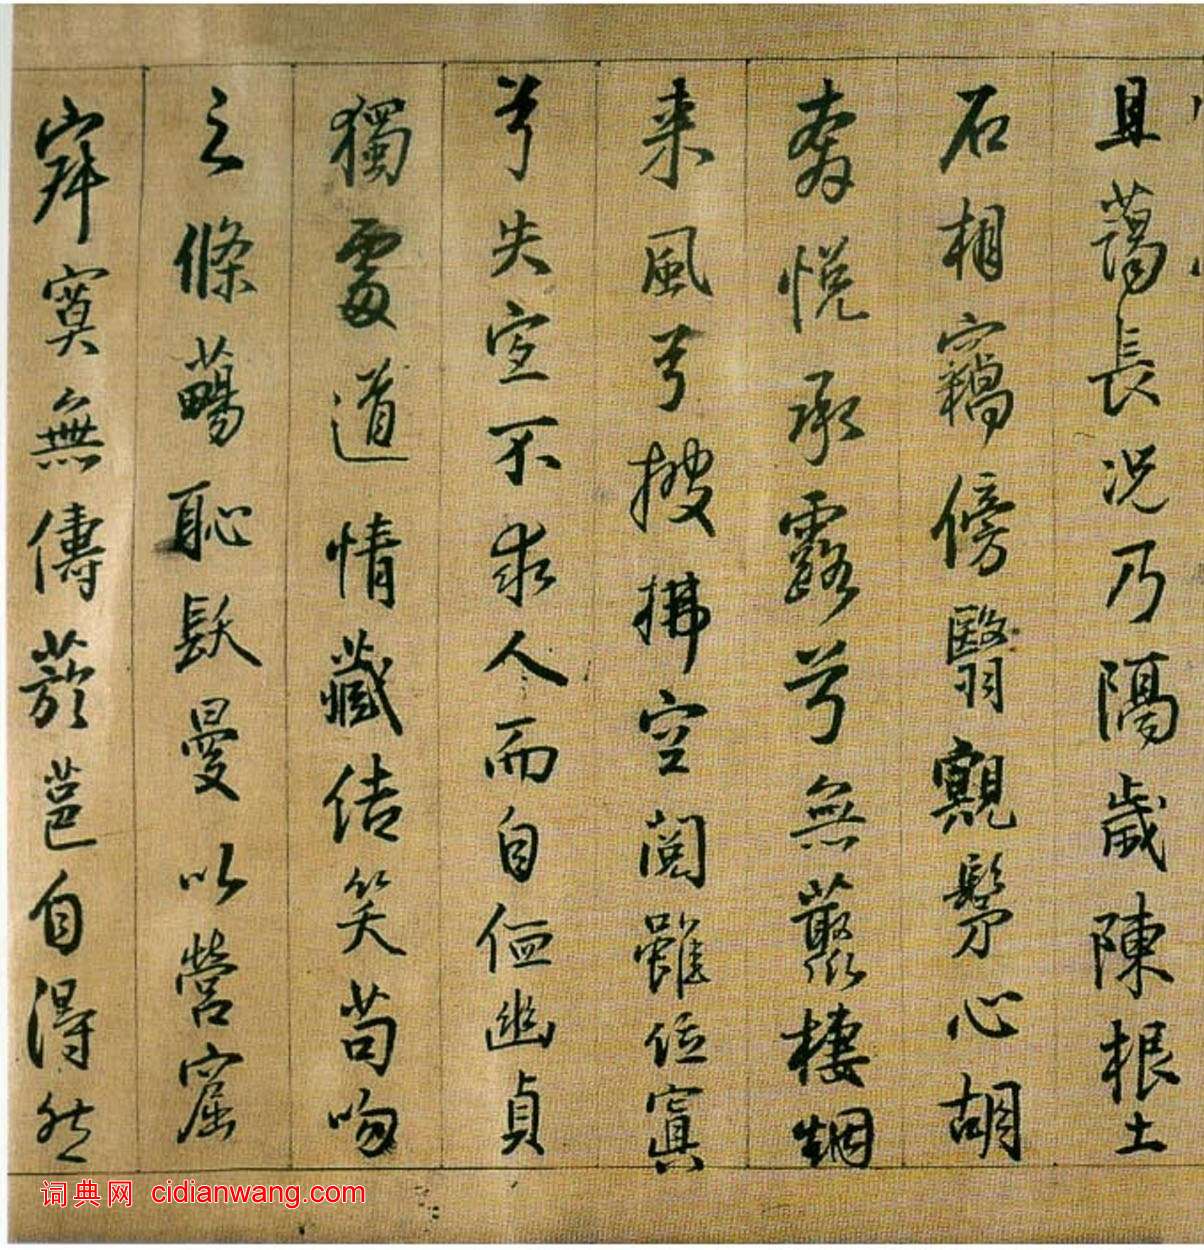 且藹長況乃隔歲陳根土
石相傍翳心胡
悅承露兮無叢棲烟
来風兮披拂空閱雖位寘
兮失宜不求人而自幽貞
獨處道情藏結笑苟吻
之條恥曼以營窟
寂寞無傳菸邑自得然
词典网 cidianwang.com